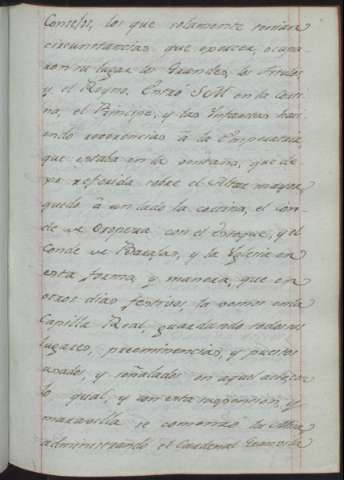 Consejos, los que solamente tenian
circunstancias que exercer, ocupa-
ron su lugar los Grandes, los Titulos
y el Reyno. Entró S.M. en la corti
na, el Principe, y las Infantas haci
endo reverencias â la Emperatriz
que estaba en la ventana, que de
xo referida sobre el Altar mayor
quedò â un lado la cortina, el Con
de de Oropesa con el Estoque, y el
Conde de Barajas, y la Yglesia en
esta forma y manera, que en
otros dias festivos, lo vemos en la
Capilla Real, guardando todos sus
lugares, preeminencias, y puestos
usados, y señalados en aquel
lo qual, y con esta suspension, y
maravilla se comenzó la Misa
administrando el Cardenal Granvela